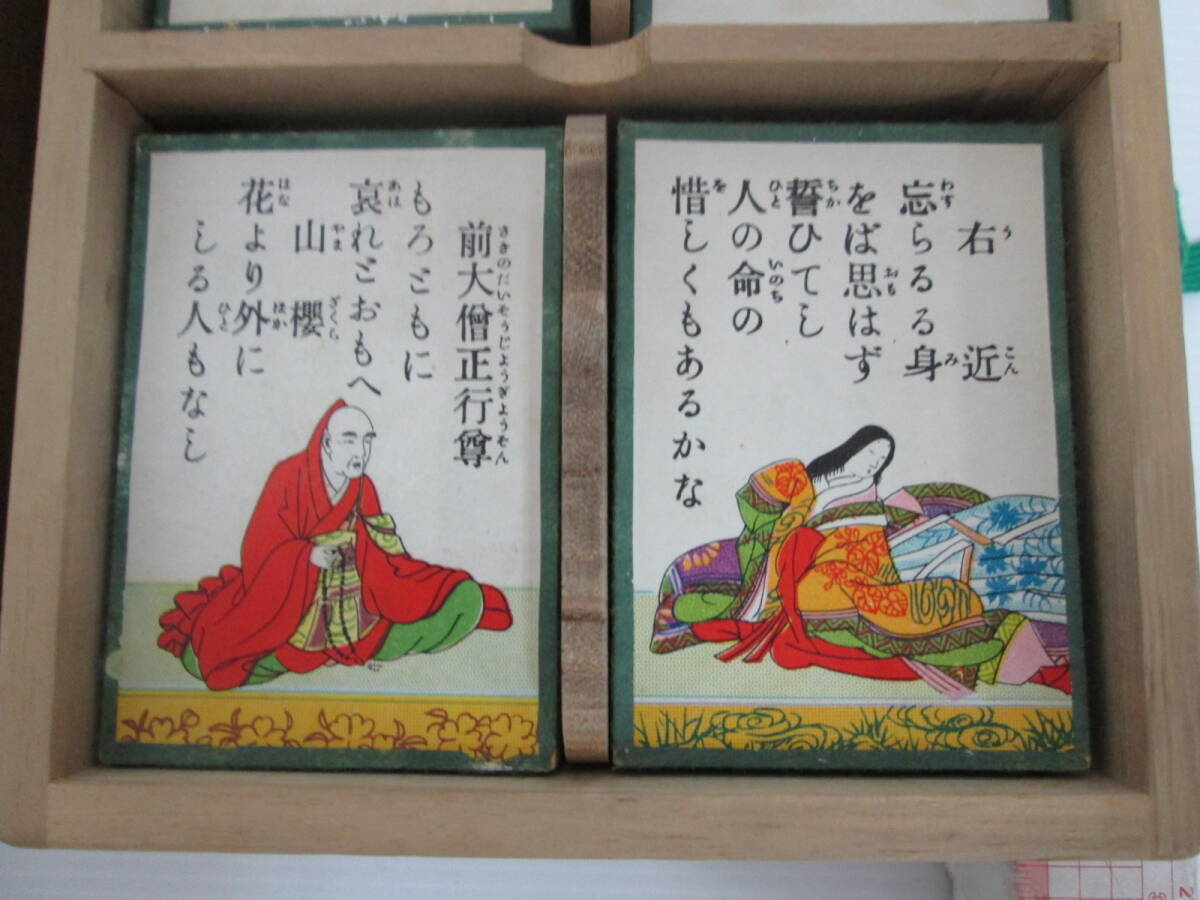 右近
忘らるる身
をば思はず
誓ひてし
人の命の
惜しくもあるかな
前大僧正行尊
もろどもに
哀れどおもへ
山櫻
花より外に
しる人もなし